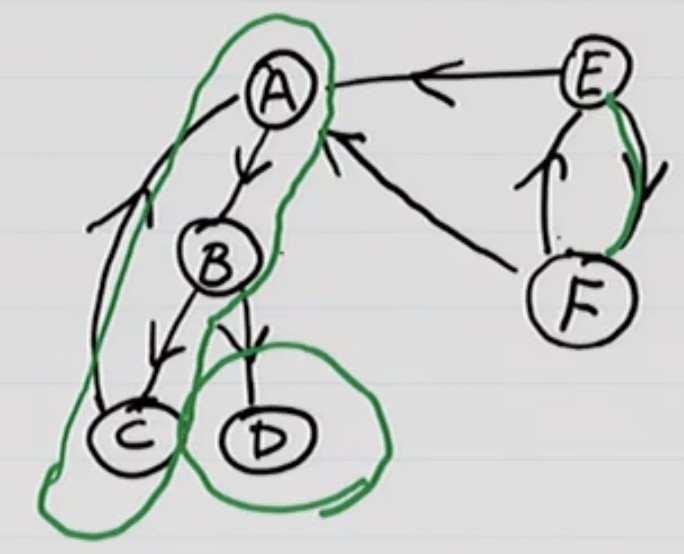 A
E
B
F
C
D